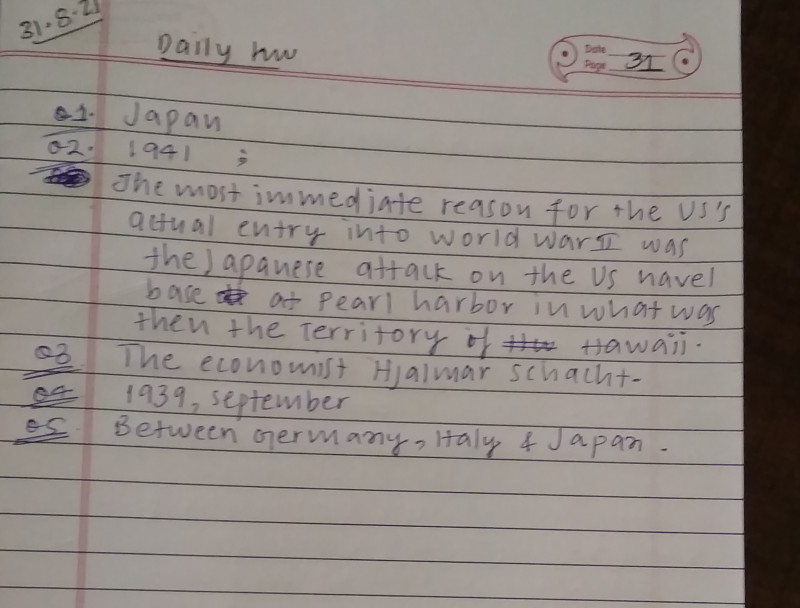 31.8.21
Daily hw
Date
Page 31
Q1. Japan
Q2. 1941 ;
The most immediate reason for the US's
actual entry into world war II was
the Japanese attack on the US navel
base at Pearl harbor in what was
then the Territory of Hawaii.
Q3 The economist Hjalmar schacht-
Q4 1939, september
Q5 Between Germany, Italy & Japan.